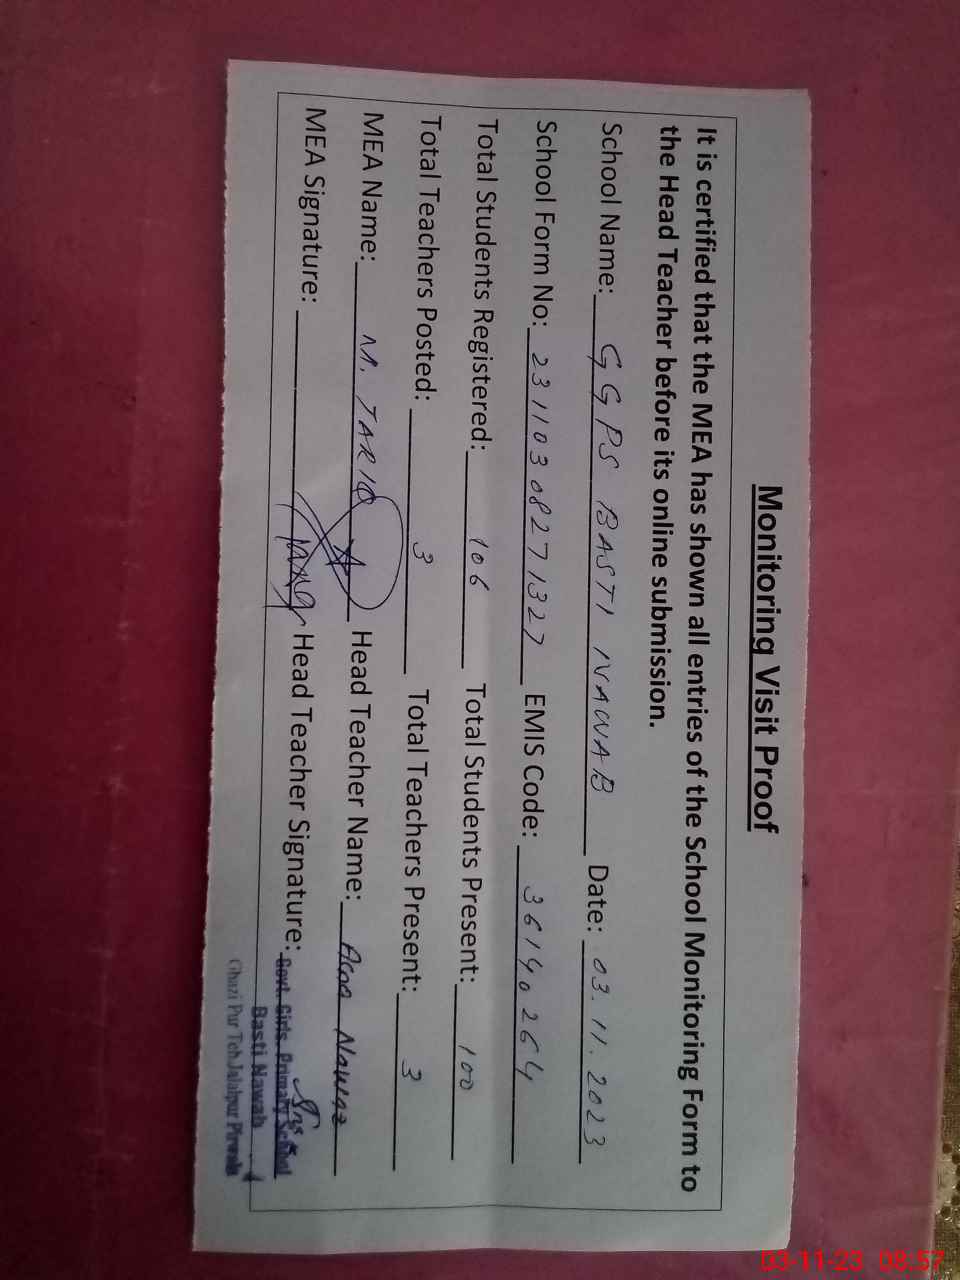 Monitoring Visit Proof
It is certified that the MEA has shown all entries of the School Monitoring Form to
the Head Teacher before its online submission.
School Name: GGPS BASTI NAWAB Date: 03.11.2023
School Form No: 231103 08271327 EMIS Code: 36140264
Total Students Registered: 106 Total Students Present: 100
Total Teachers Posted: 3 Total Teachers Present: 3
MEA Name: M. TARIQ Head Teacher Name: Nawaz
MEA Signature: Head Teacher Signature:
Govt. Girls Primary School
Basti Nawab
Ghazi Pur Teh Jalalpur Pirwala
03-11-23 08:57